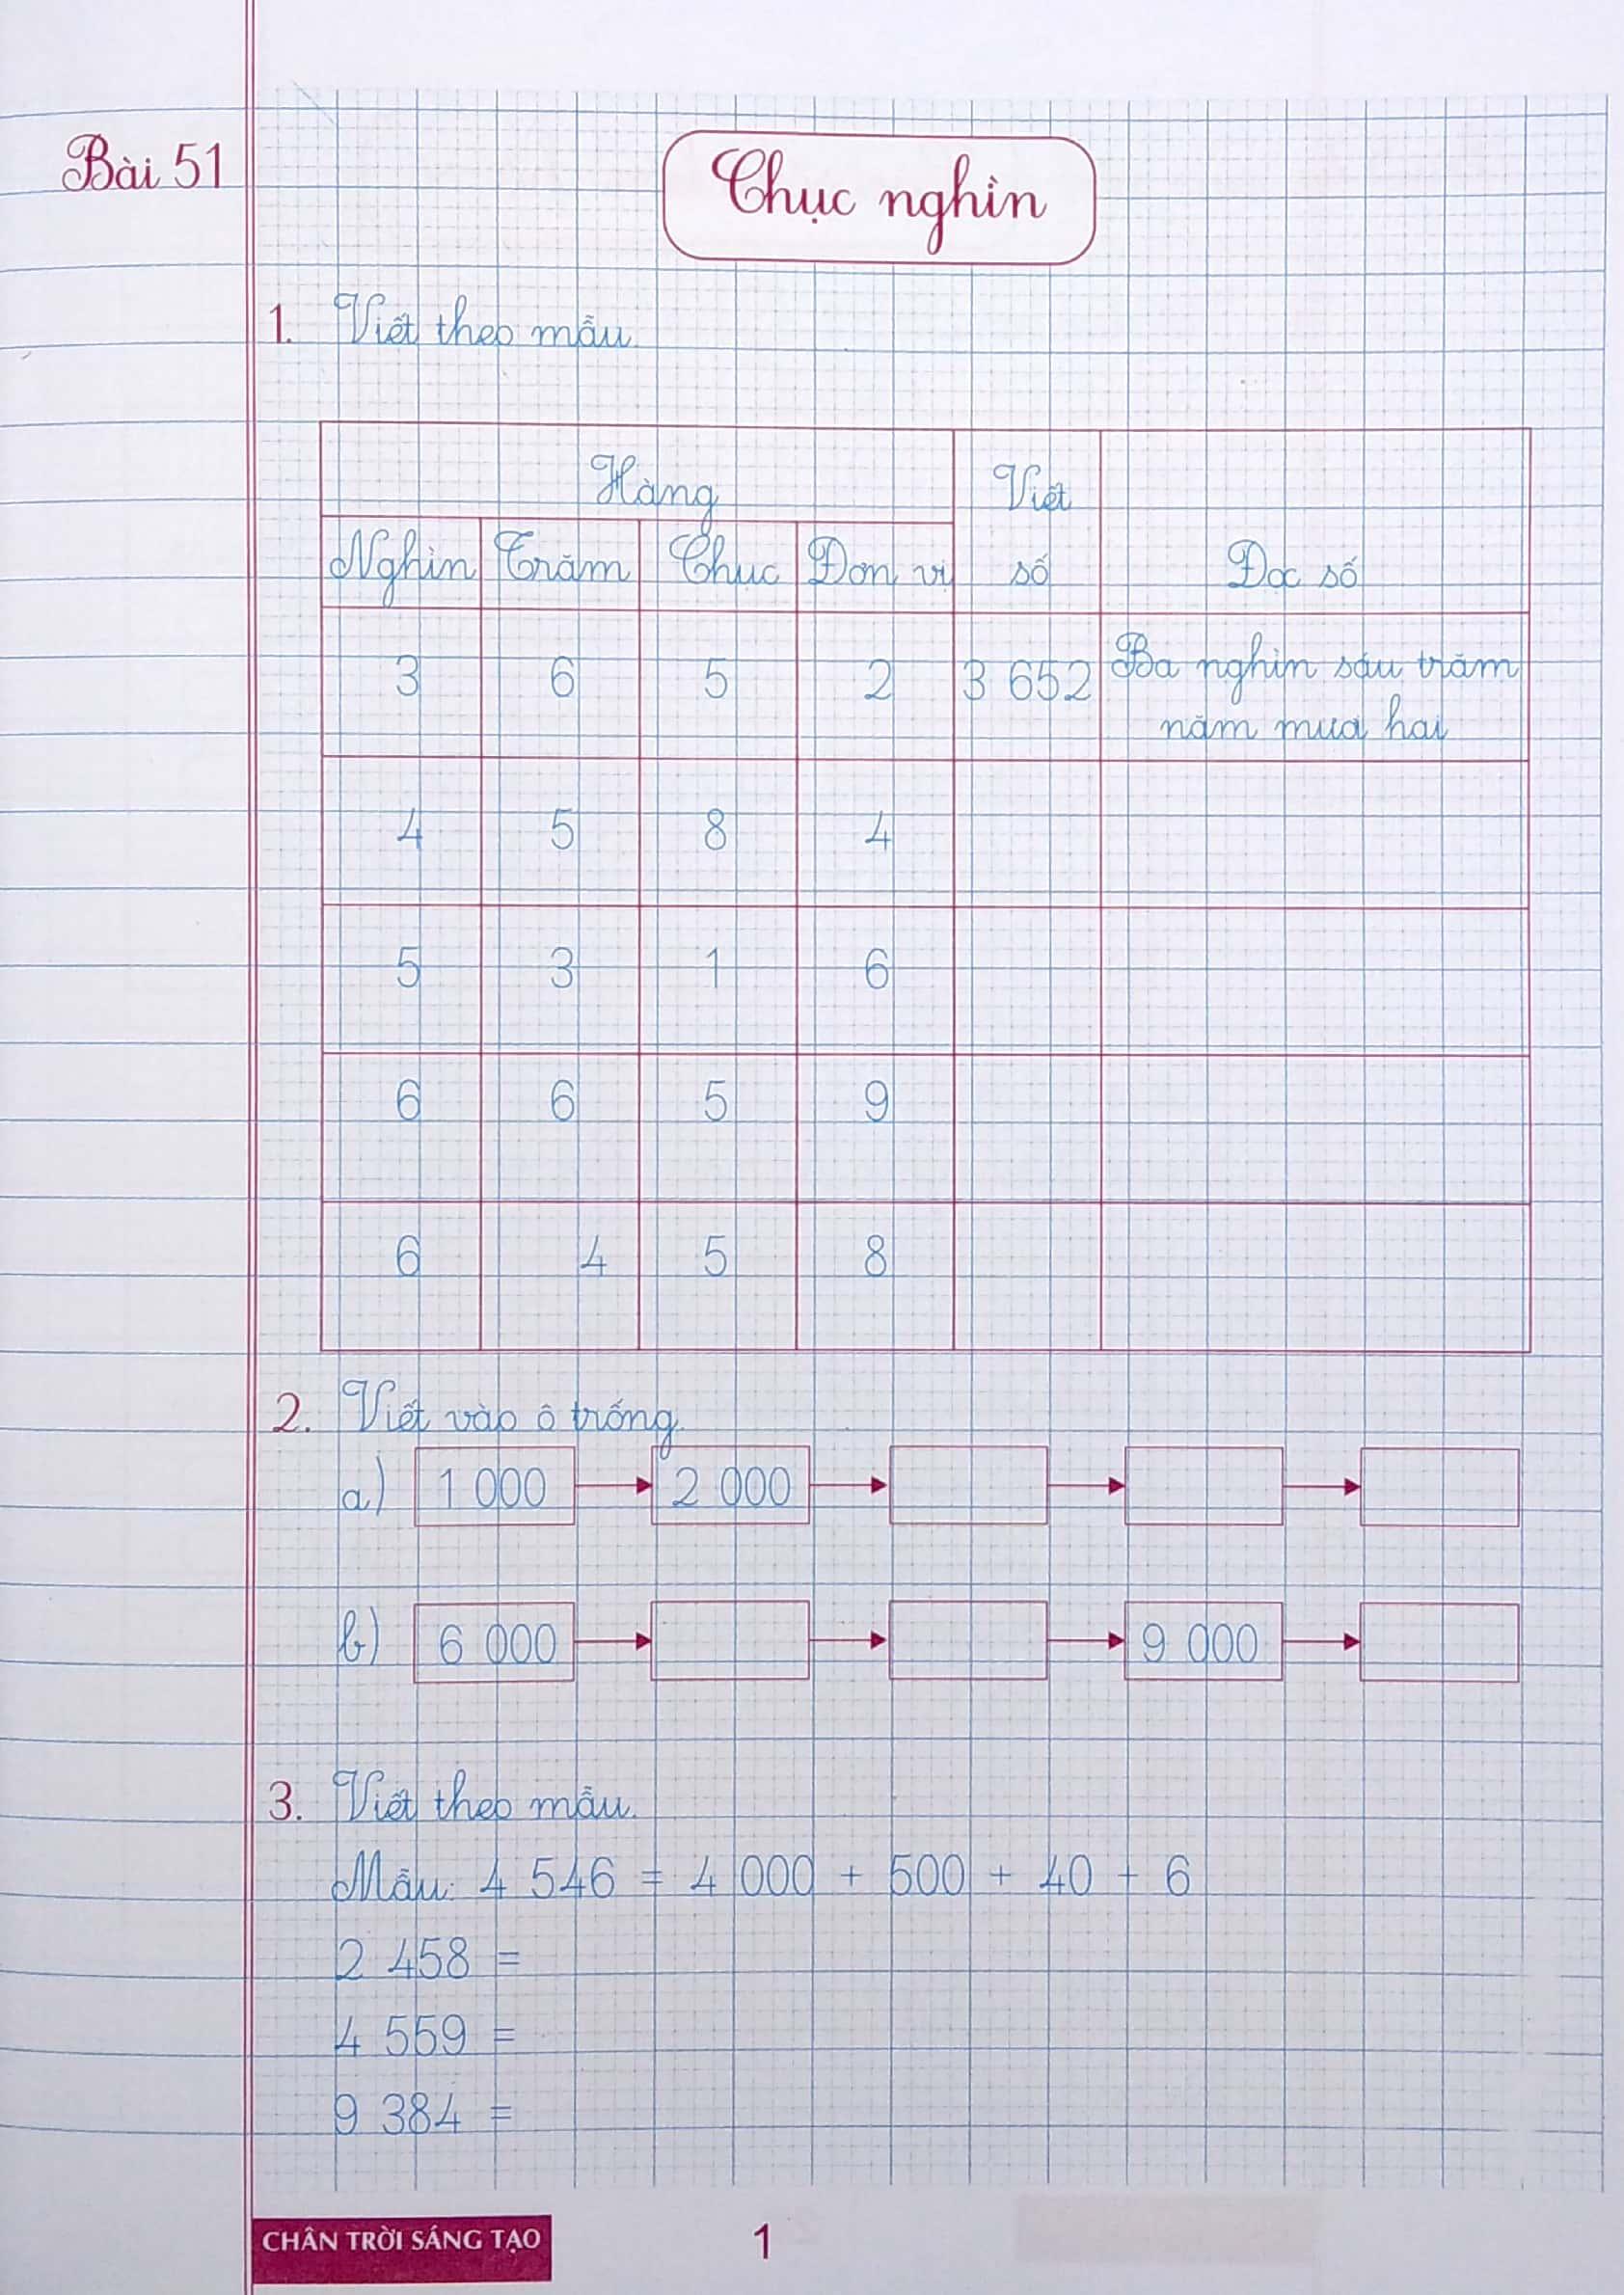 Bài 51
Chục nghìn
1. Viết theo mẫu.
Hàng Viết số Đọc số
Nghìn Trăm Chục Đơn vị
3 6 5 2 3 652 Ba nghìn sáu trăm
năm mươi hai
4 5 8 4
5 3 1 6
6 6 5 9
6 4 5 8
2. Viết vào ô trống.
a) 1 000 2 000
b) 6 000 9 000
3. Viết theo mẫu.
Mẫu: 4 546 = 4 000 + 500 + 40 + 6
2 458 =
4 559 =
9 384 =
CHÂN TRỜI SÁNG TẠO
1